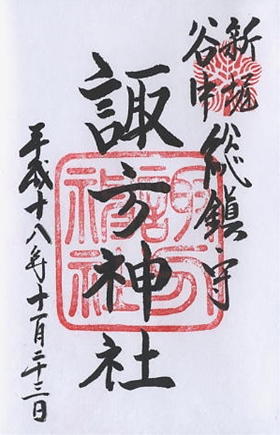 新堀
谷中
総鎮守
諏方神社
平成十八年十一月二十三日
諏方神社